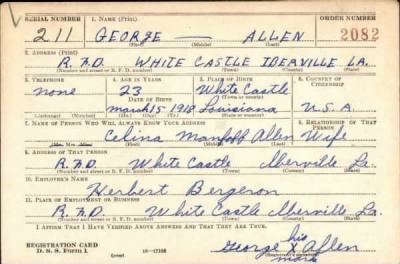 SERIAL NUMBER 1. NAME (Print) ORDER NUMBER
211 GEORGE — ALLEN 2082
(First) (Middle) (Last)
2. ADDRESS (Print)
R.F.D. WHITE CASTLE IBERVILLE LA.
(Number and street or R. F. D. number) (Town) (County) (State)
3. TELEPHONE 4. AGE IN YEARS 5. PLACE OF BIRTH 6. COUNTRY OF CITIZENSHIP
none 23 White Castle
DATE OF BIRTH (Town or county)
March 15 1918 Louisiana U.S.A.
(Exchange) (Number) (Mo.) (Day) (Yr.) (State or country)
7. NAME OF PERSON WHO WILL ALWAYS KNOW YOUR ADDRESS 8. RELATIONSHIP OF THAT PERSON
Celina Allen Wife
(First) (Middle) (Last)
9. ADDRESS OF THAT PERSON
R.F.D. White Castle Iberville La.
(Number and street or R. F. D. number) (Town) (County) (State)
10. EMPLOYER'S NAME
Herbert Bergeron
11. PLACE OF EMPLOYMENT OR BUSINESS
R.F.D. White Castle Iberville La.
(Number and street or R. F. D. number) (Town) (County) (State)
I AFFIRM THAT I HAVE VERIFIED ABOVE ANSWERS AND THAT THEY ARE TRUE.
his
REGISTRATION CARD George X Allen
D. S. S. Form 1 (over) mark